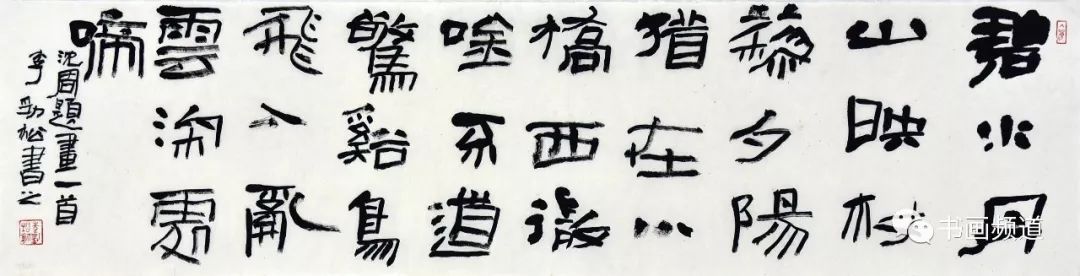 碧水丹
山映杖
藜夕陽
猶在小
橋西微
唫不道
驚谿鳥
飛入亂
雲深處
啼
沈周題畫一首
李勁松書之
书画频道